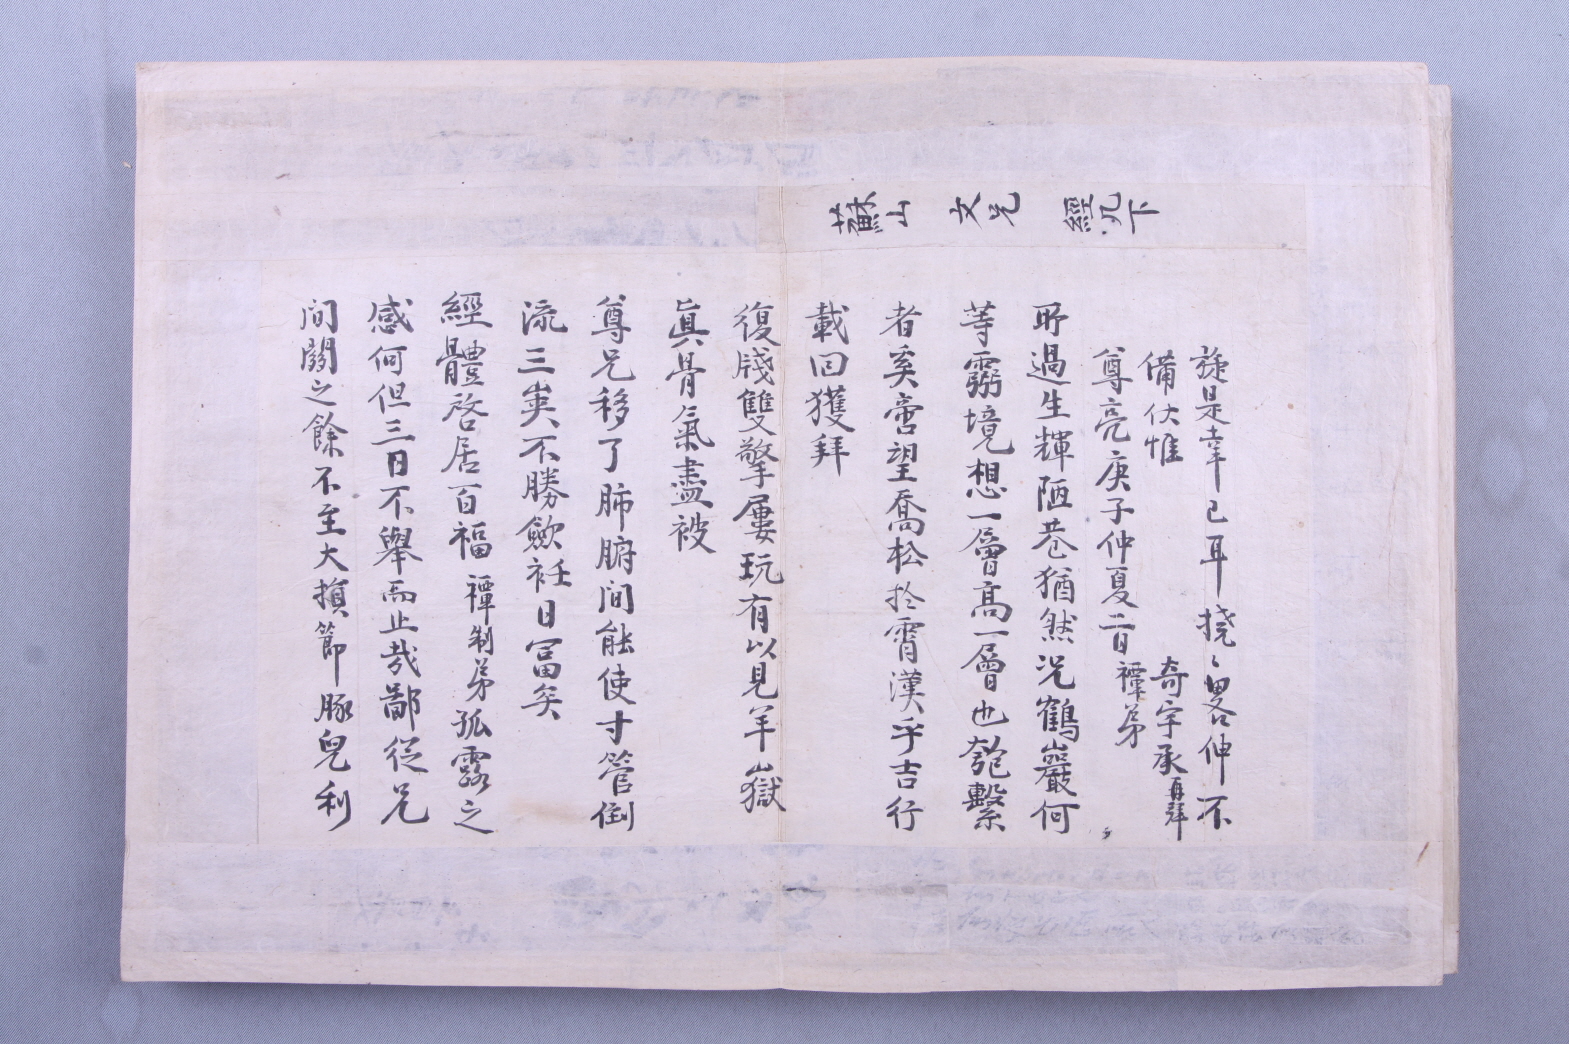 蘇山 文兄 經几下
所過生輝陋巷猶然况鶴巖何
等靈境想一層高一層也匏繫
者奚啻望喬松於霄漢乎吉行
載回獲拜
復牋雙擎屢玩有以見羊嶽
眞骨氣盡被
尊兄移了肺腑間能使寸管倒
流三峽不勝歛衽日富矣
經體啓居百福禫制弟孤露之
感何但三日不擧而止哉鄙從兄
間關之餘不至大損節豚兒利
旋是幸已耳撓〻畧伸不
備伏惟
尊亮庚子仲夏二日禫弟
奇宇承再拜